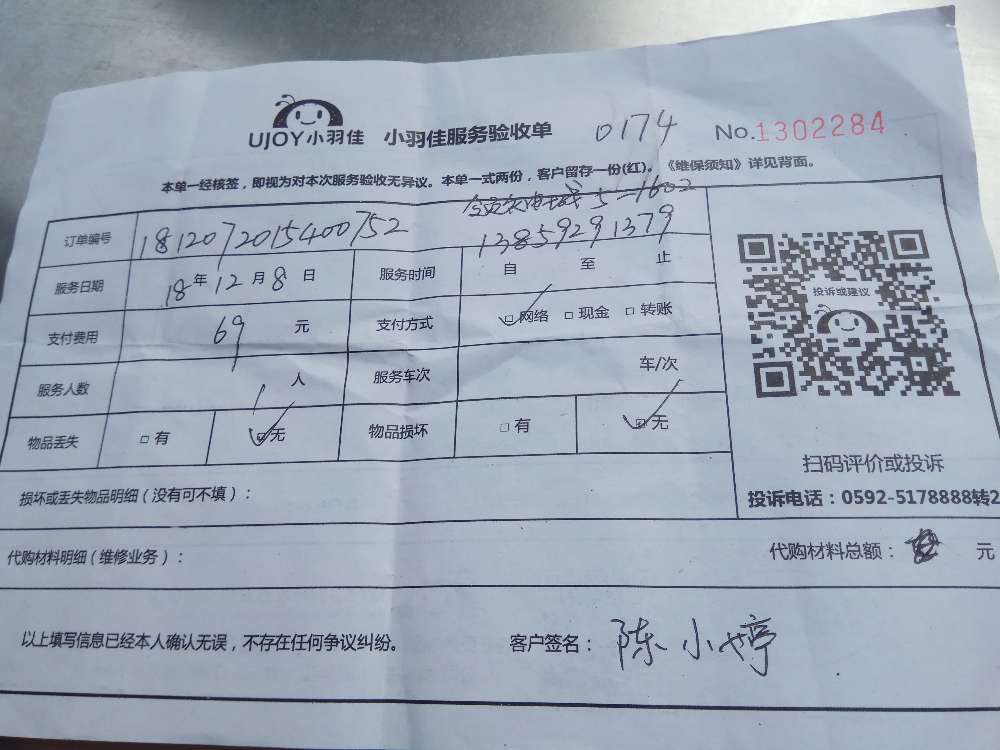 UJOY小羽佳 小羽佳服务验收单 0174 No.1302284
本单一经核签，即视为对本次服务验收无异议。本单一式两份，客户留存一份(红)。《维保须知》详见背面。
5-1602
订单编号 1812072015400752 13859291379
服务日期 18年12月8日 服务时间 自 至 止
支付费用 69 元 支付方式 ☑网络 □现金 □转账
服务人数 1人 服务车次 车/次
物品丢失 □有 ☑无 物品损坏 □有 ☑无
损坏或丢失物品明细（没有可不填）：
投诉或建议
扫码评价或投诉
投诉电话：0592-5178888转2
代购材料明细（维修业务）： 代购材料总额： 元
以上填写信息已经本人确认无误，不存在任何争议纠纷。 客户签名：陈小婷